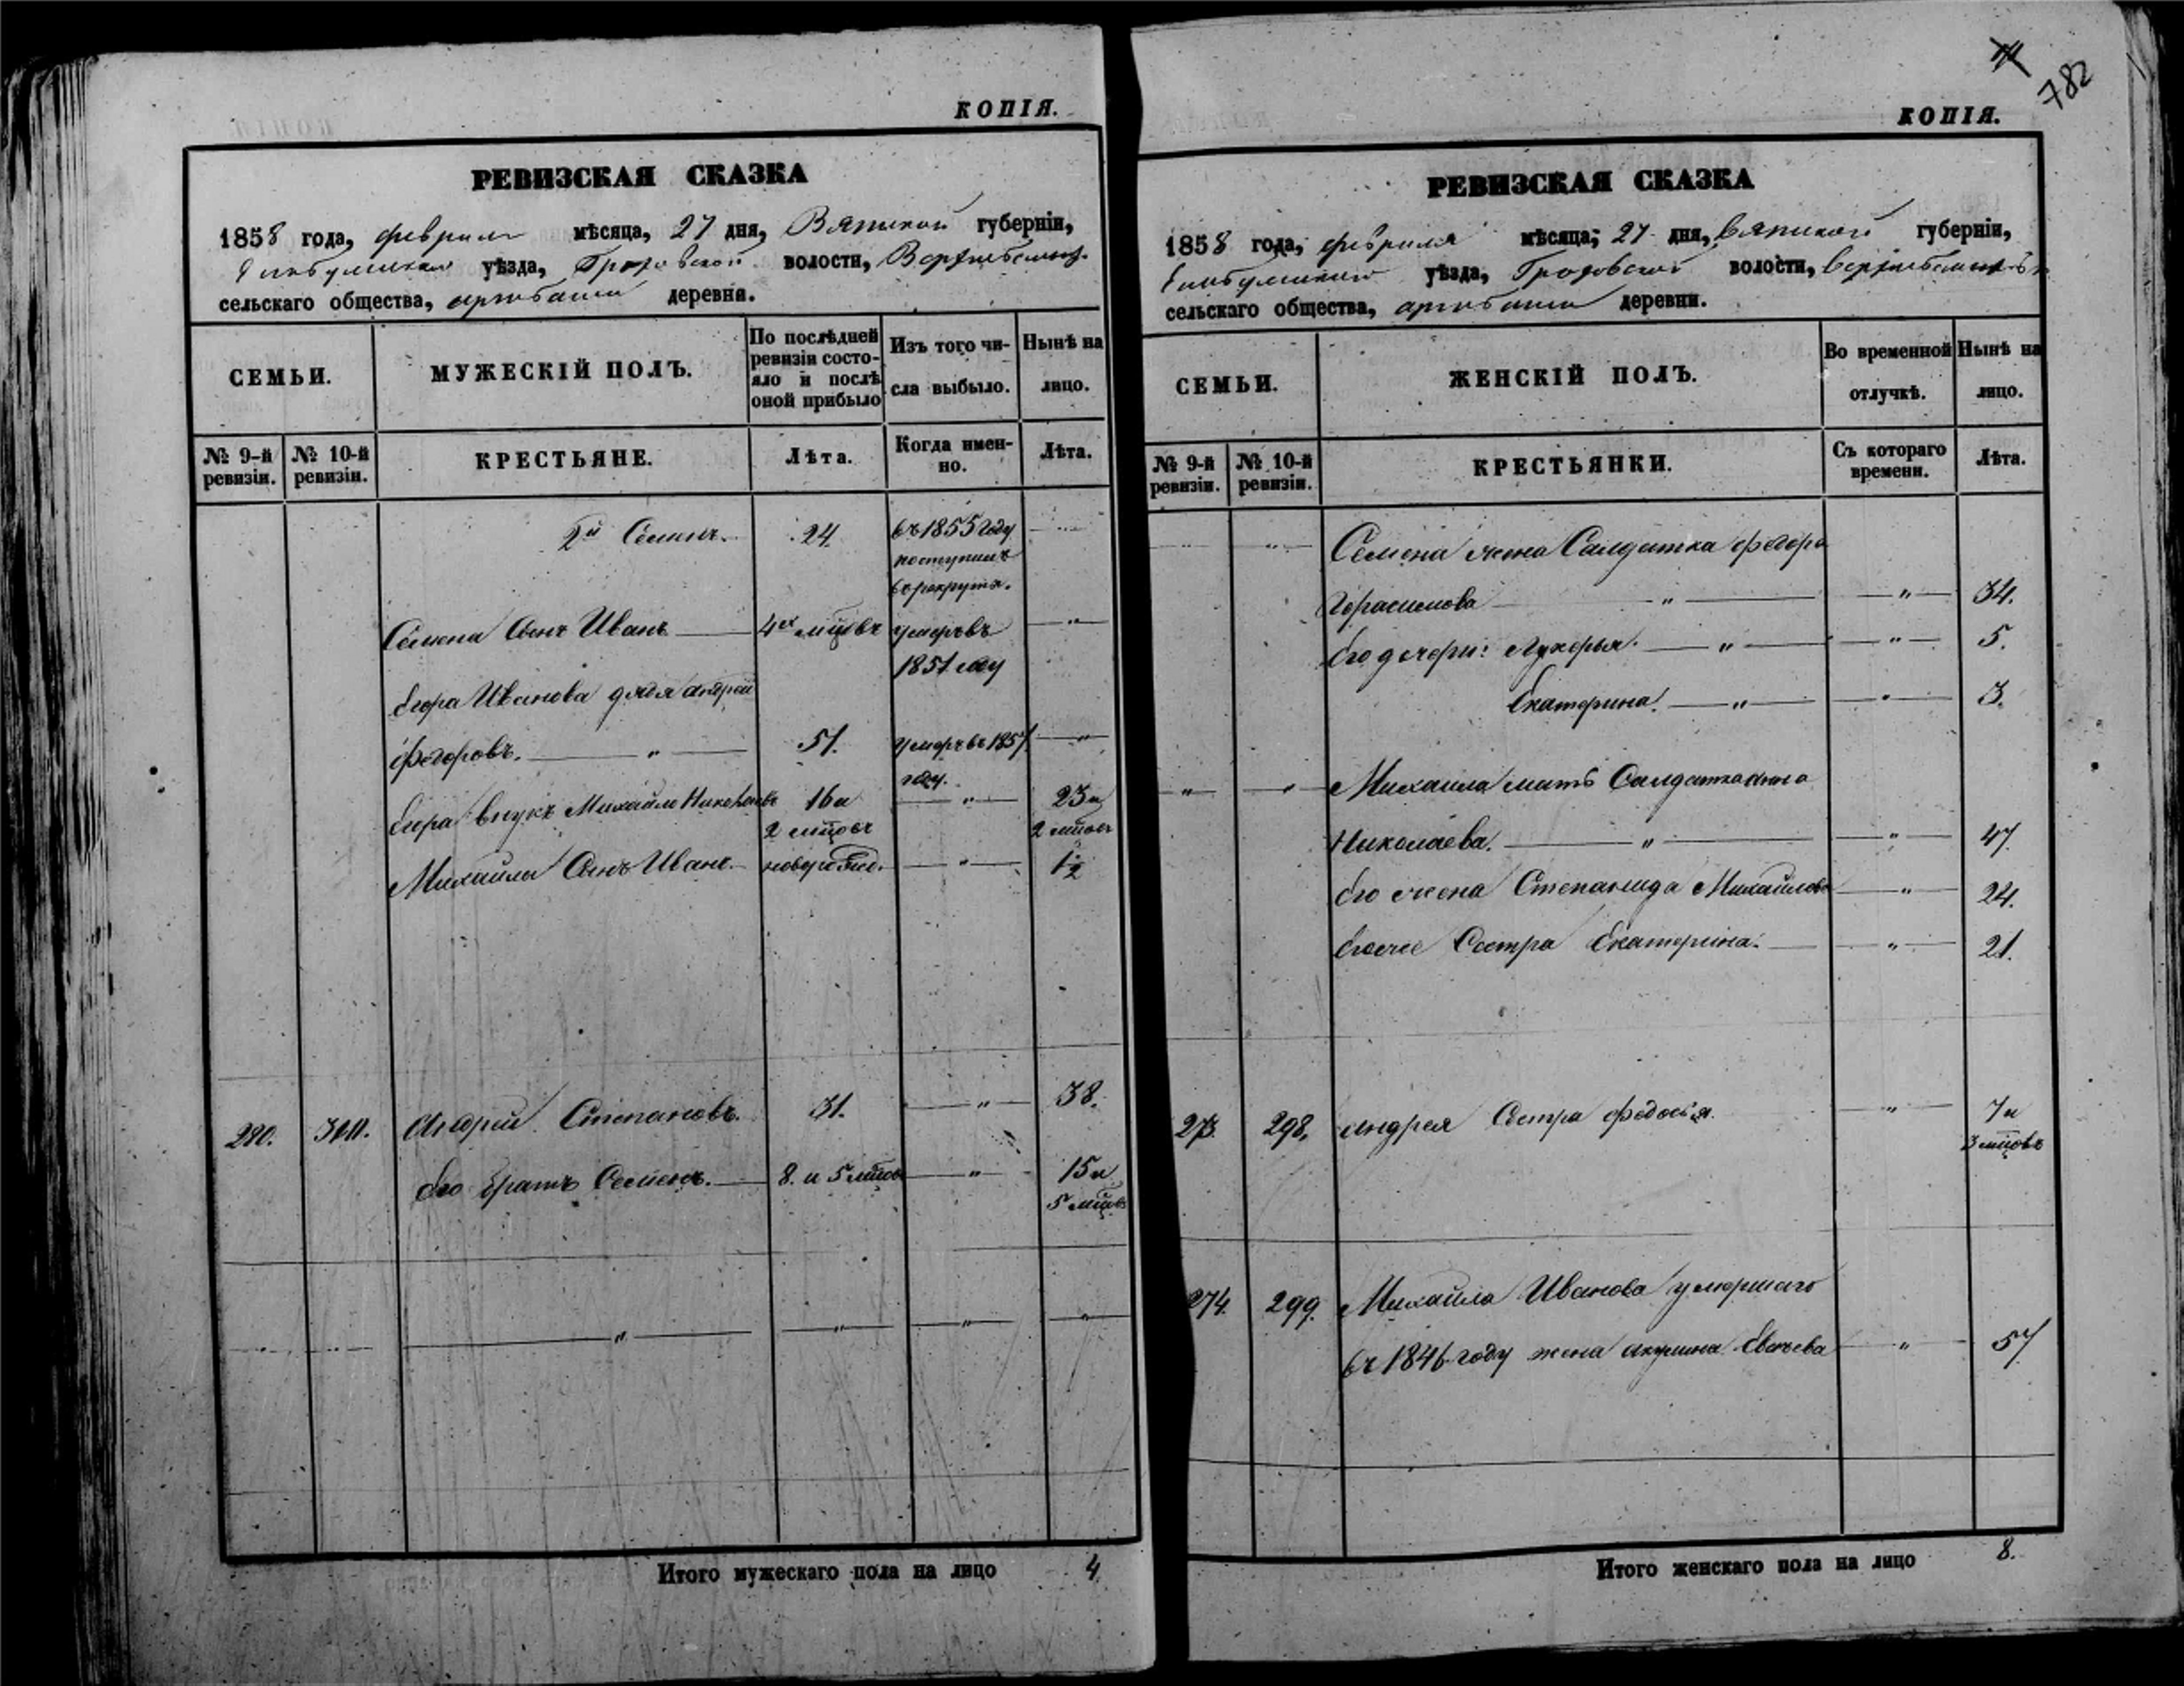 КОПІЯ.
РЕВИЗСКАЯ СКАЗКА
1858 года, февраля мѣсяца, 27 дня, Вятской губерніи,
Елабужскаго уѣзда, Граховской волости,
сельскаго общества, деревни.
СЕМЬИ.
МУЖЕСКІЙ ПОЛЪ.
По послѣдней ревизіи состояло и послѣ оной прибыло
Изъ того числа выбыло.
Нынѣ на лицо.
№ 9-й ревизіи.
№ 10-й ревизіи.
КРЕСТЬЯНЕ.
Лѣта.
Когда именно.
Лѣта.
2й Семенъ. 24. въ 1855 году
поступилъ
въ рекруты.
Семена Сынъ Иванъ 4хъ мцовъ умеръ въ "
1851 году
Егора Иванова дядя Андрей
Федоровъ. " 51. умеръ въ 1857 "
году.
Егора внукъ Михайло 16 и " 23 и
2 мцовъ 2 мцовъ
Михаила Сынъ Иванъ. новорожд. " 1½
280. Андрей Степановъ. 31. " 38.
его братъ Семенъ. 8. и 5 мцовъ " 15 и
5 мцовъ
" " " "
Итого мужескаго пола на лицо 4
782
КОПІЯ.
РЕВИЗСКАЯ СКАЗКА
1858 года, февраля мѣсяца, 27 дня, Вятской губерніи,
Елабужскаго уѣзда, Граховской волости,
сельскаго общества, деревни.
СЕМЬИ.
ЖЕНСКІЙ ПОЛЪ.
Во временной отлучкѣ.
Нынѣ на лицо.
№ 9-й ревизіи.
№ 10-й ревизіи.
КРЕСТЬЯНКИ.
Съ котораго времени.
Лѣта.
" " Семена жена Салдатка Федора
Герасимова " " 34.
его дочери: Лукерья. " " 5.
Екатерина. " " 3.
" " Михаила мать Салдатка Анна
Николаева. " " 47.
его жена Степанида Михайлова " 24.
Сестра Екатерина. " 21.
273. 298. Андрея Сестра Федосья. " 7 и
3 мцовъ
274. 299. Михайла Иванова умершаго
въ 1846 году жена Акулина " 57
Итого женскаго пола на лицо 8.